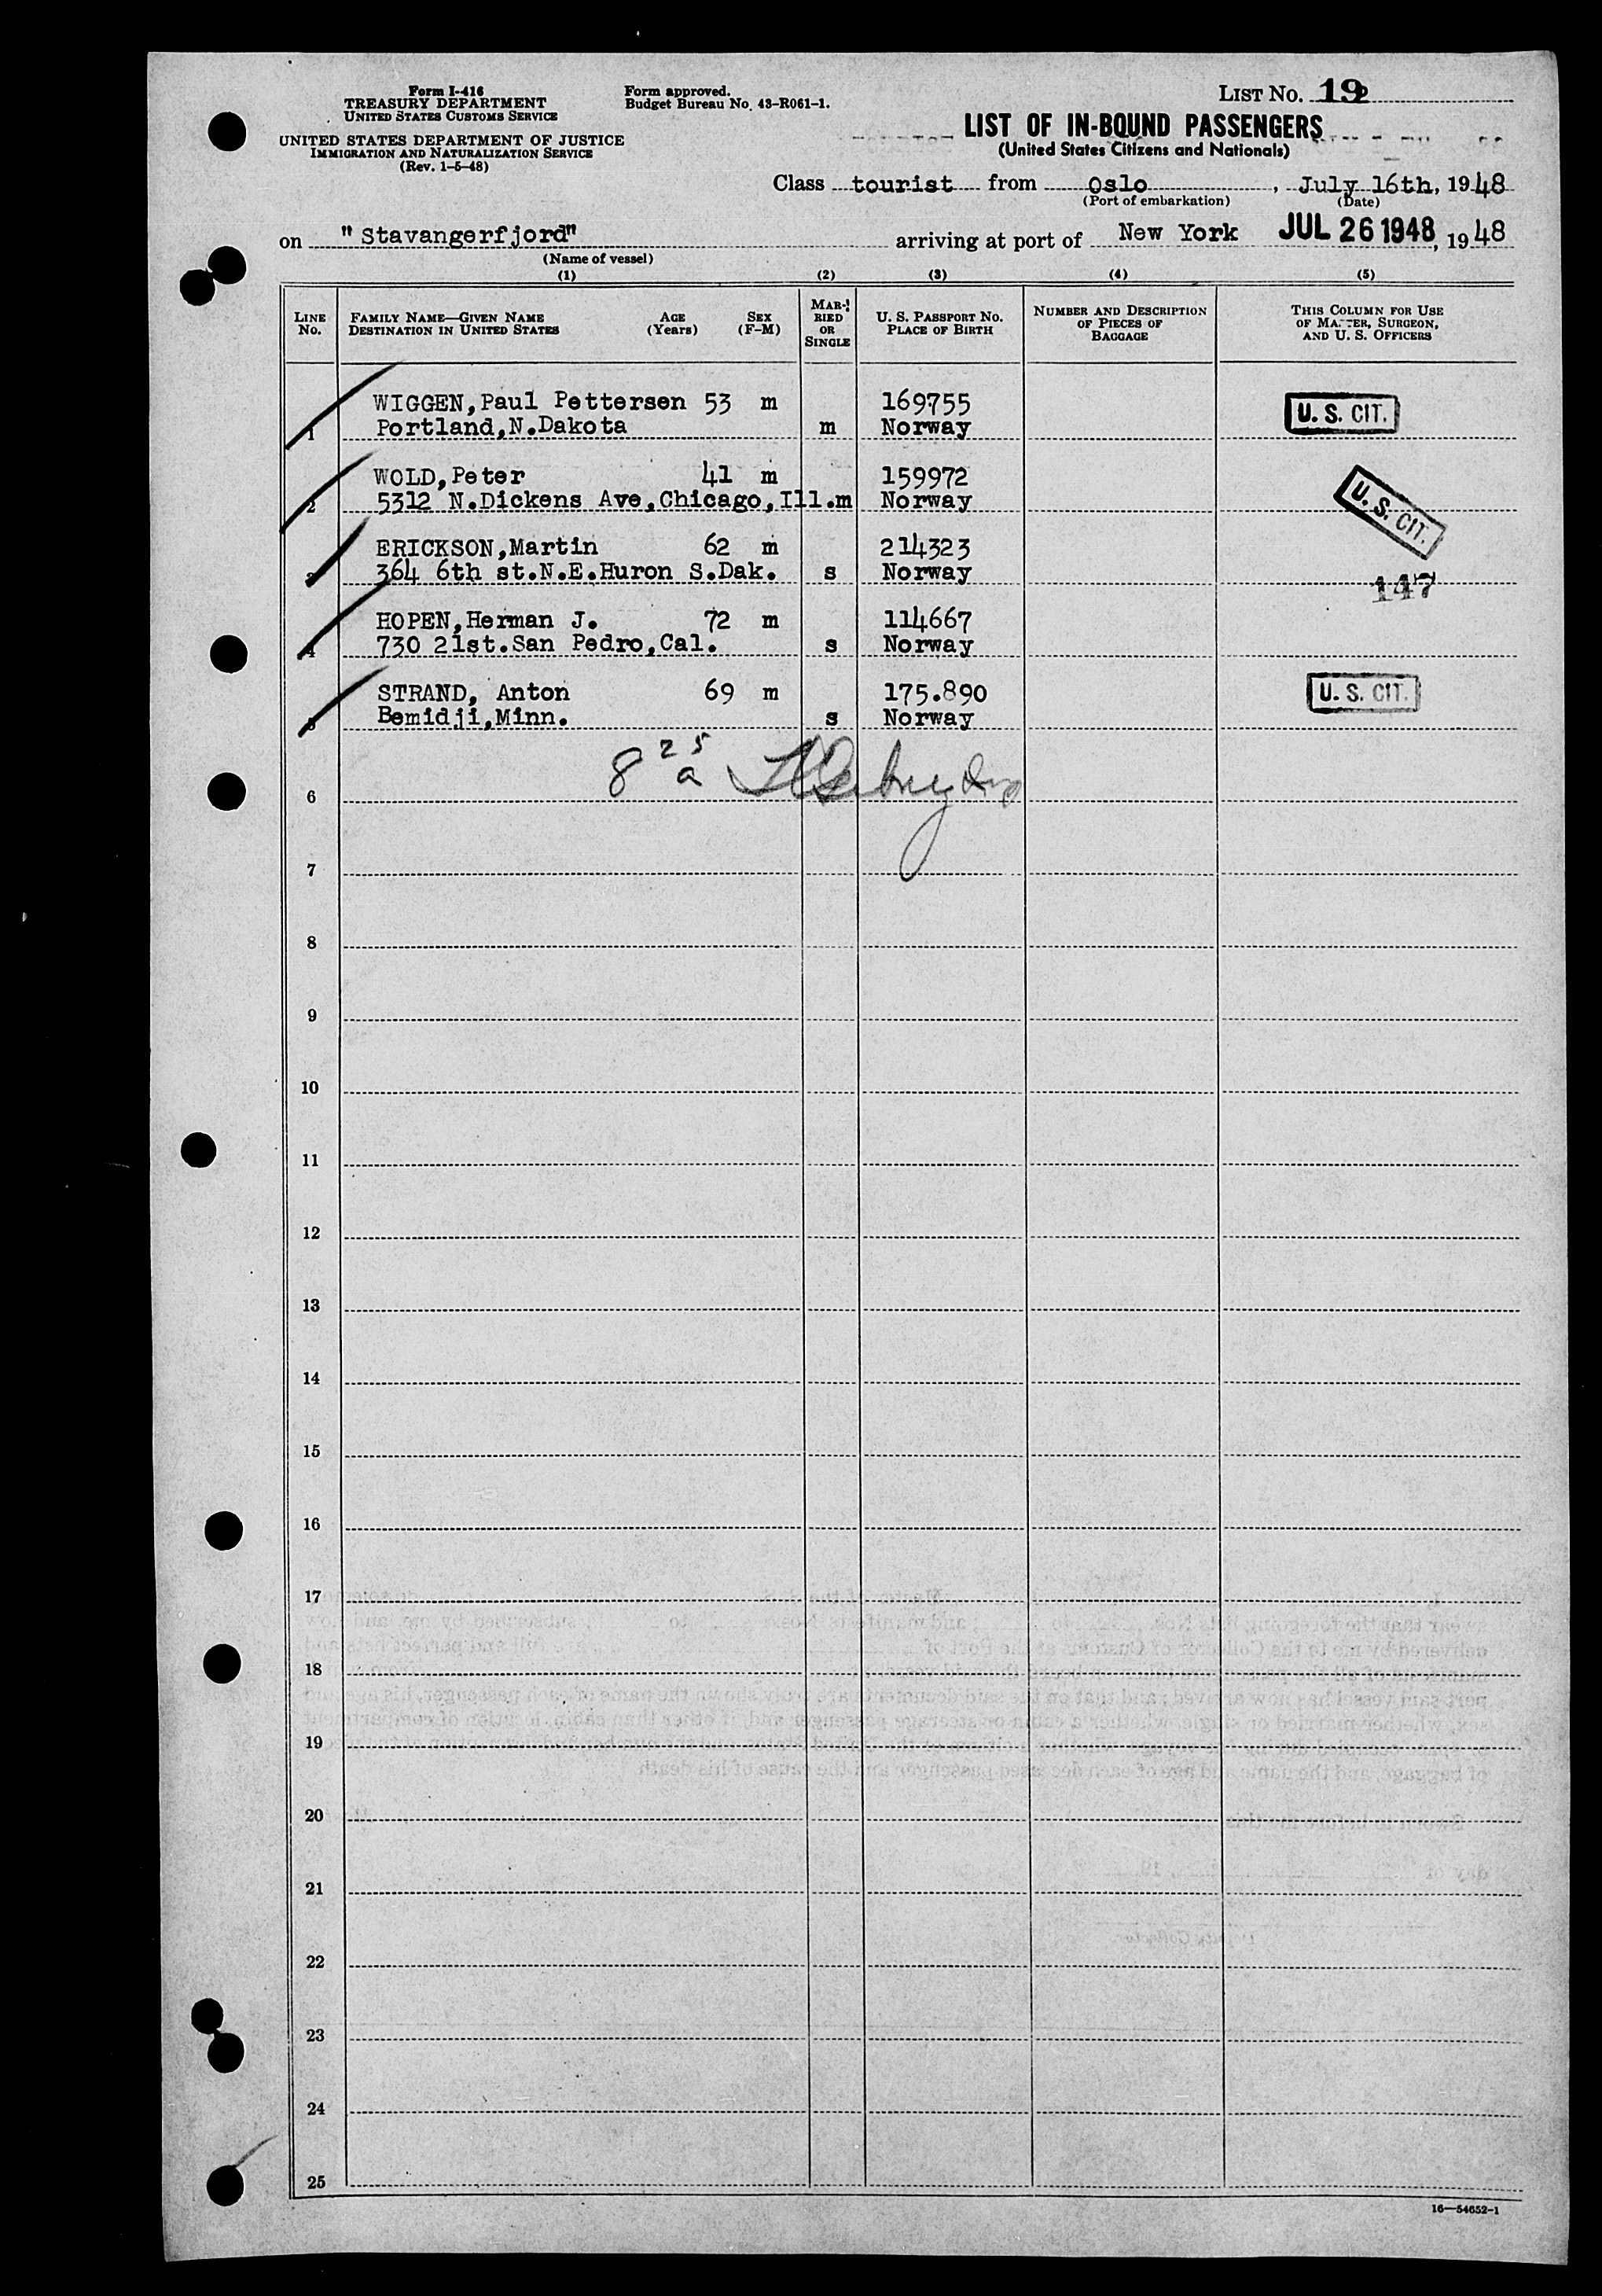 Form I-416
TREASURY DEPARTMENT
UNITED STATES CUSTOMS SERVICE
UNITED STATES DEPARTMENT OF JUSTICE
IMMIGRATION AND NATURALIZATION SERVICE
(Rev. 1-5-48)
Form approved.
Budget Bureau No. 43-R061-1.
LIST NO. 19
LIST OF IN-BOUND PASSENGERS
(United States Citizens and Nationals)
Class tourist from Oslo, July 16th, 1948
(Port of embarkation) (Date)
on "Stavangerfjord" arriving at port of New York JUL 26 1948, 1948
(Name of vessel)
(1) (2) (3) (4) (5)
LINE No. FAMILY NAME—GIVEN NAME DESTINATION IN UNITED STATES AGE (Years) SEX (F-M) MARRIED OR SINGLE U. S. PASSPORT No. PLACE OF BIRTH NUMBER AND DESCRIPTION OF PIECES OF BAGGAGE THIS COLUMN FOR USE OF MASTER, SURGEON, AND U. S. OFFICERS
WIGGEN,Paul Pettersen 53 m 169755 U. S. CIT.
1 Portland,N.Dakota m Norway
WOLD,Peter 41 m 159972 U. S. CIT.
2 5312 N.Dickens Ave,Chicago,Ill.m Norway
ERICKSON,Martin 62 m 214323
3 364 6th st.N.E.Huron S.Dak. s Norway 147
HOPEN,Herman J. 72 m 114667
4 730 21st.San Pedro,Cal. s Norway
STRAND, Anton 69 m 175.890 U. S. CIT.
5 Bemidji,Minn. s Norway
8 25 a
6
7
8
9
10
11
12
13
14
15
16
17
18
19
20
21
22
23
24
25
16—54652-1